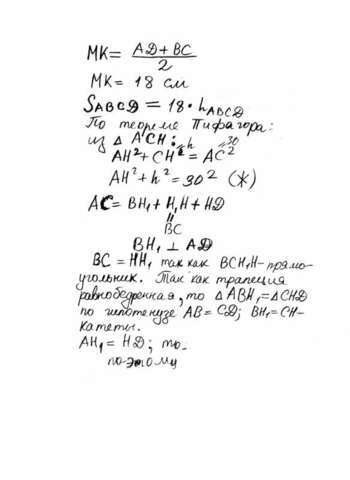 MK = AD + BC / 2
MK = 18 см
SABCD = 18 · hABCD
По теореме Пифагора:
из △ ACH: h 30
AH² + CH² = AC²
AH² + h² = 30² (*)
AC = BH₁ + H₁H + HD
BC
BH₁ ⊥ AD
BC = HH₁ так как BCH₁H - прямо-
угольник. Так как трапеция
равнобедренная, то △ABH₁ = △CHD
по гипотенузе AB = CD; BH₁ = CH -
катеты.
AH₁ = HD; то.
поэтому